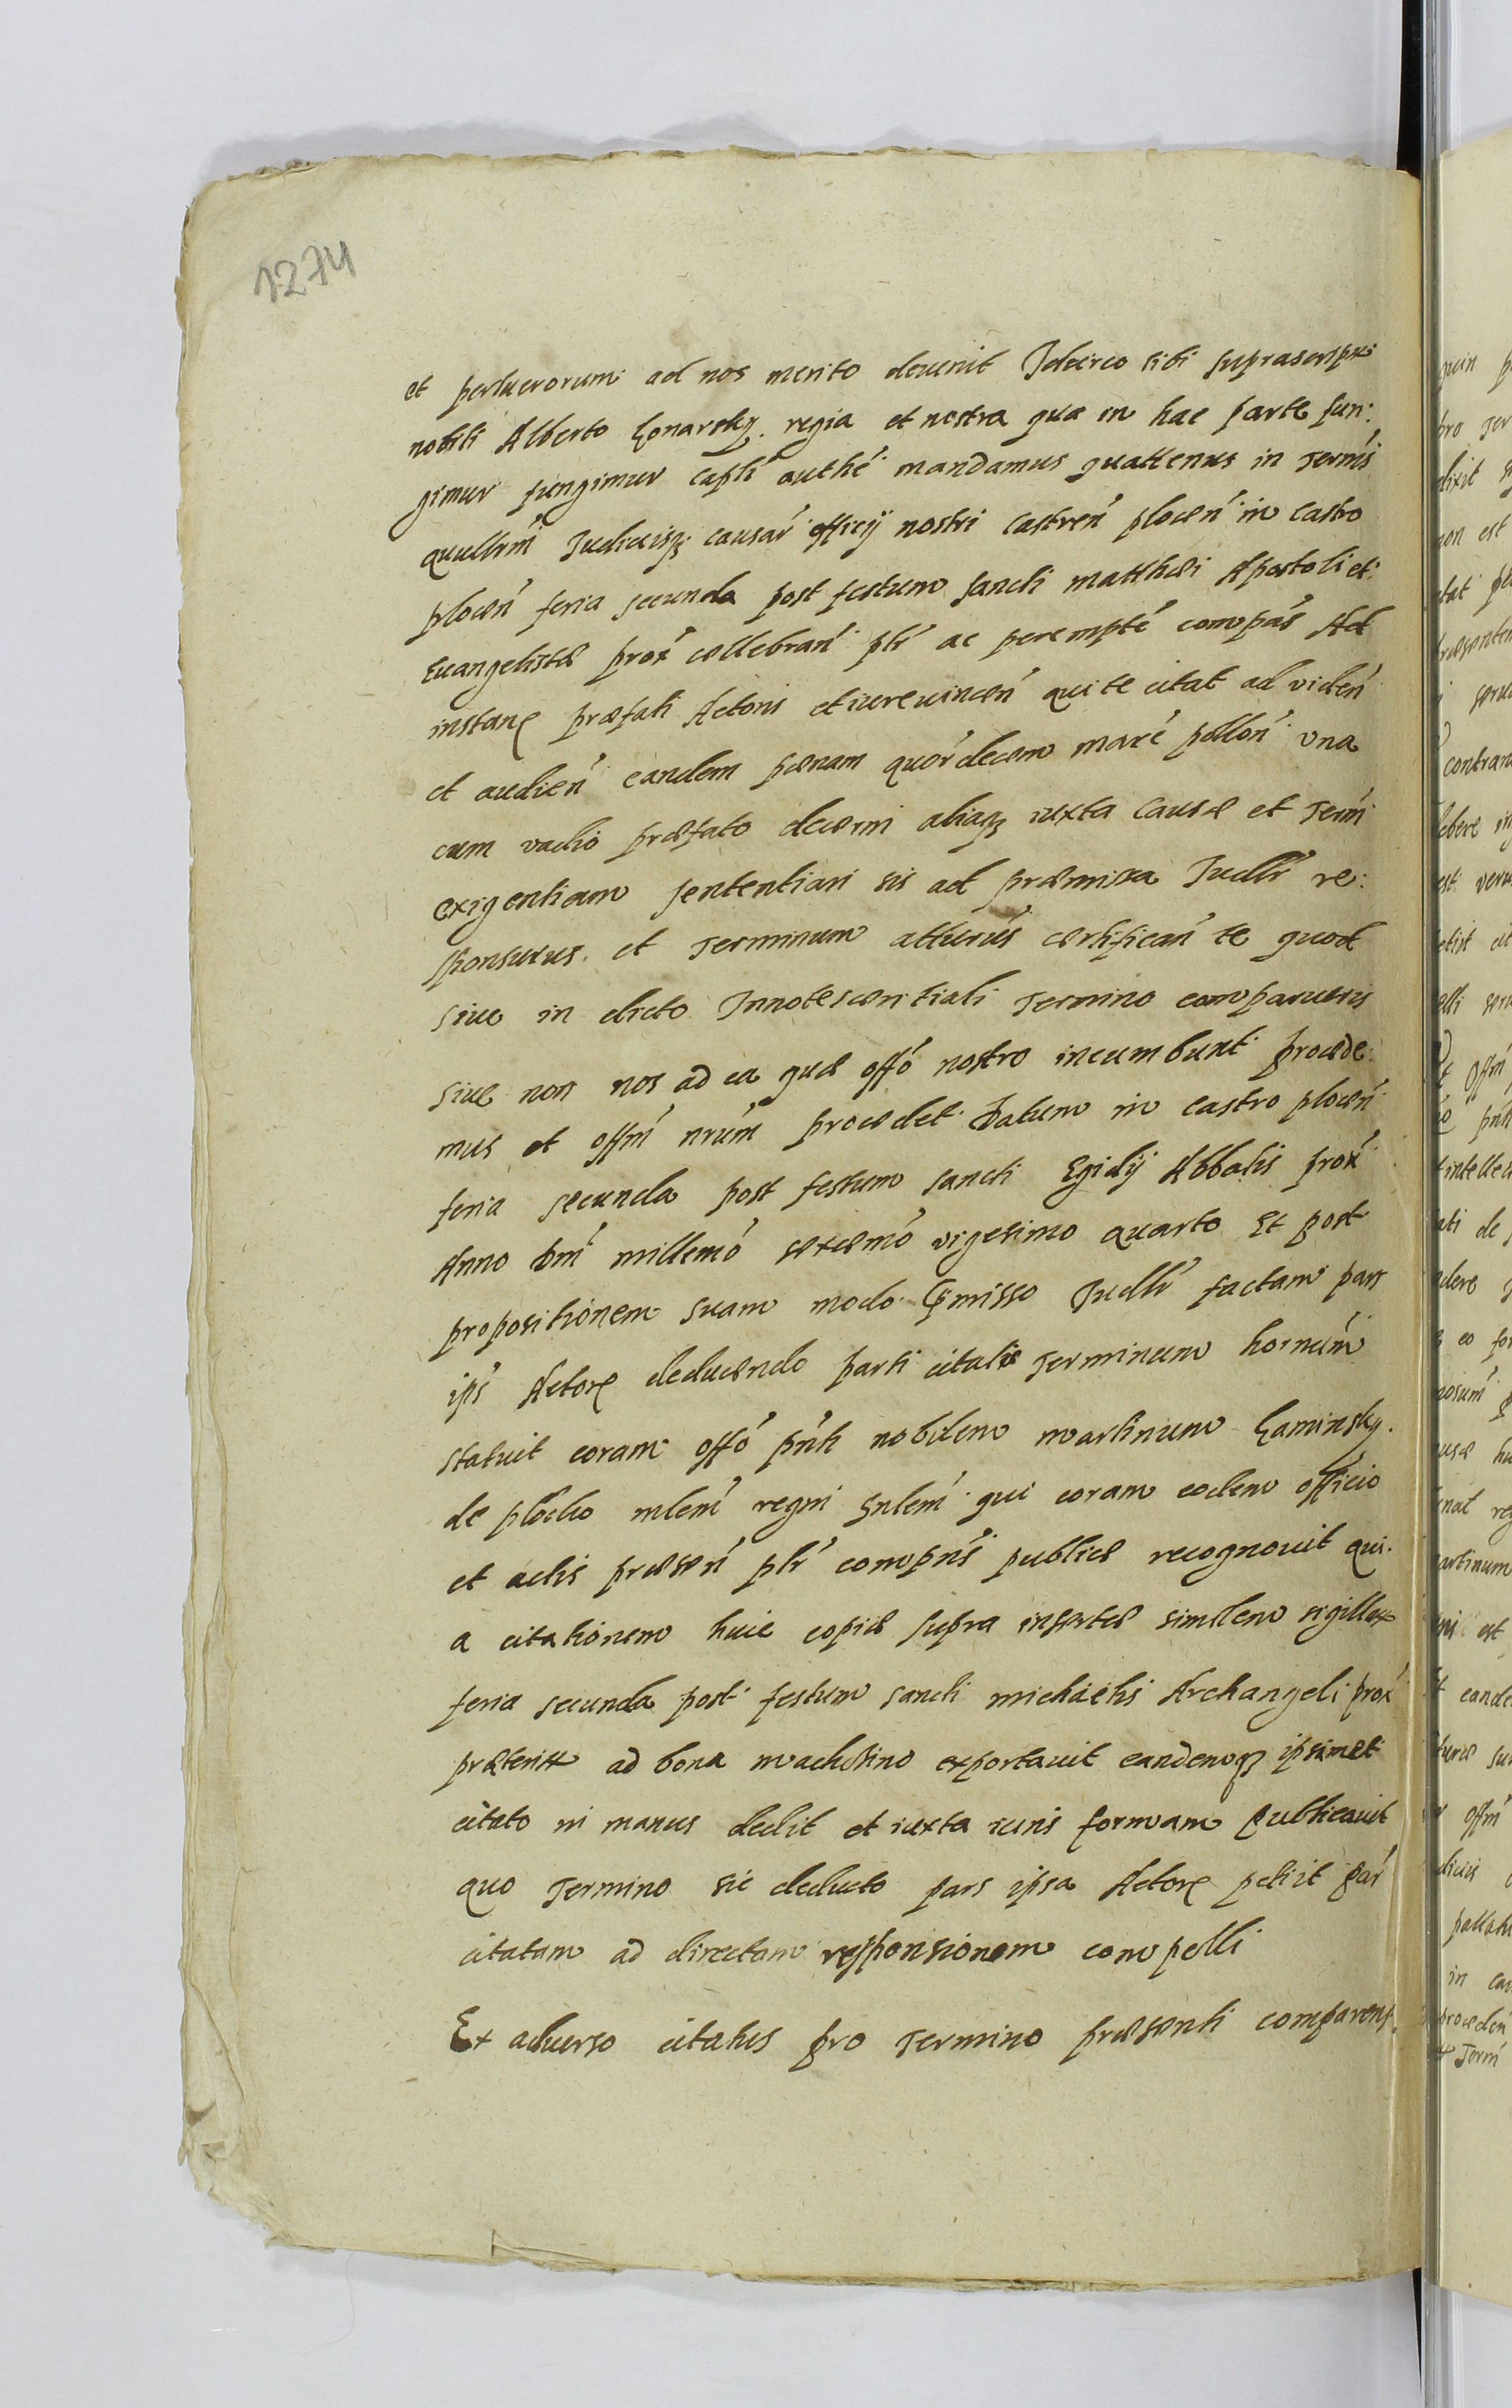 1274
et perluerorum ad nos merito devenit Idcirco tibi suprascripto
nobili Alberto Gonarsky regia et nostra qua in hac parte fun:
gimur fungimur capli authe mandamus quattenus in Termis
quullrm Judicijsq; causar officij nostri Castren plocen in Castro
plocen feria secunda post festum sancti matthæi Apostoli et
Euangelistæ prox cællebran plr ac perempte compas Ad
instanę præfati Actoris et iureuincen qui te citat ad viden
et audien eandem pænam quor decem marc pollon una
cum vadio præfato decærni aliaq; iuxta causæ et Termi
exigentiam sententiari sis ad præmissa Judlr re:
sponsurus et Terminum atturus certifican te quod
siue in dicto Innotescentiali Termino comparueris
siue non nos ad ea quæ offo nostro incumbunt procede:
mus et offm nrum procedet Datum in castro plocen
feria secunda post festum sancti Egidij Abbatis prox
Anno Dni millemo sexcemo vigesimo quarto Et post
propositionem suam modo pmisso Judlr factam pars
ips Actorę deducendo parti citatæ Terminum hornum
statuit coram offo pnti nobilem martinum Kaminsky
de plocko mlem regni gnlem qui coram eodem officio
et actis præsen plr compns publicæ recognouit qui
a citationem huic copiæ supra insertæ similem sigillatã
feria secunda post festum sancti michaelis Archangeli prox
præterita ad bona machcino exportauit eandemq; ipsimet
citato in manus dedit et iuxta iuris formam publicauit
quo Termino sic deducto pars ipsa Actorę petiit par
citatam ad directam responsionem compelli
Ex aduerso citatus pro Termino præsenti comparens